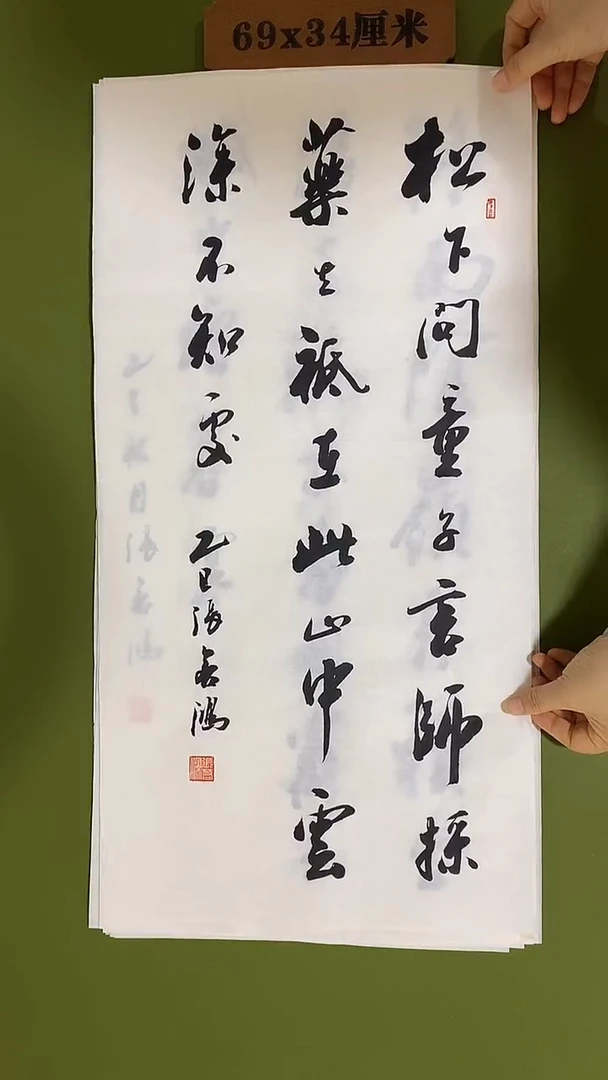 69x34厘米
松下問童子言師採
藥去祗在此山中雲
深不知處
乙巳張若鴻